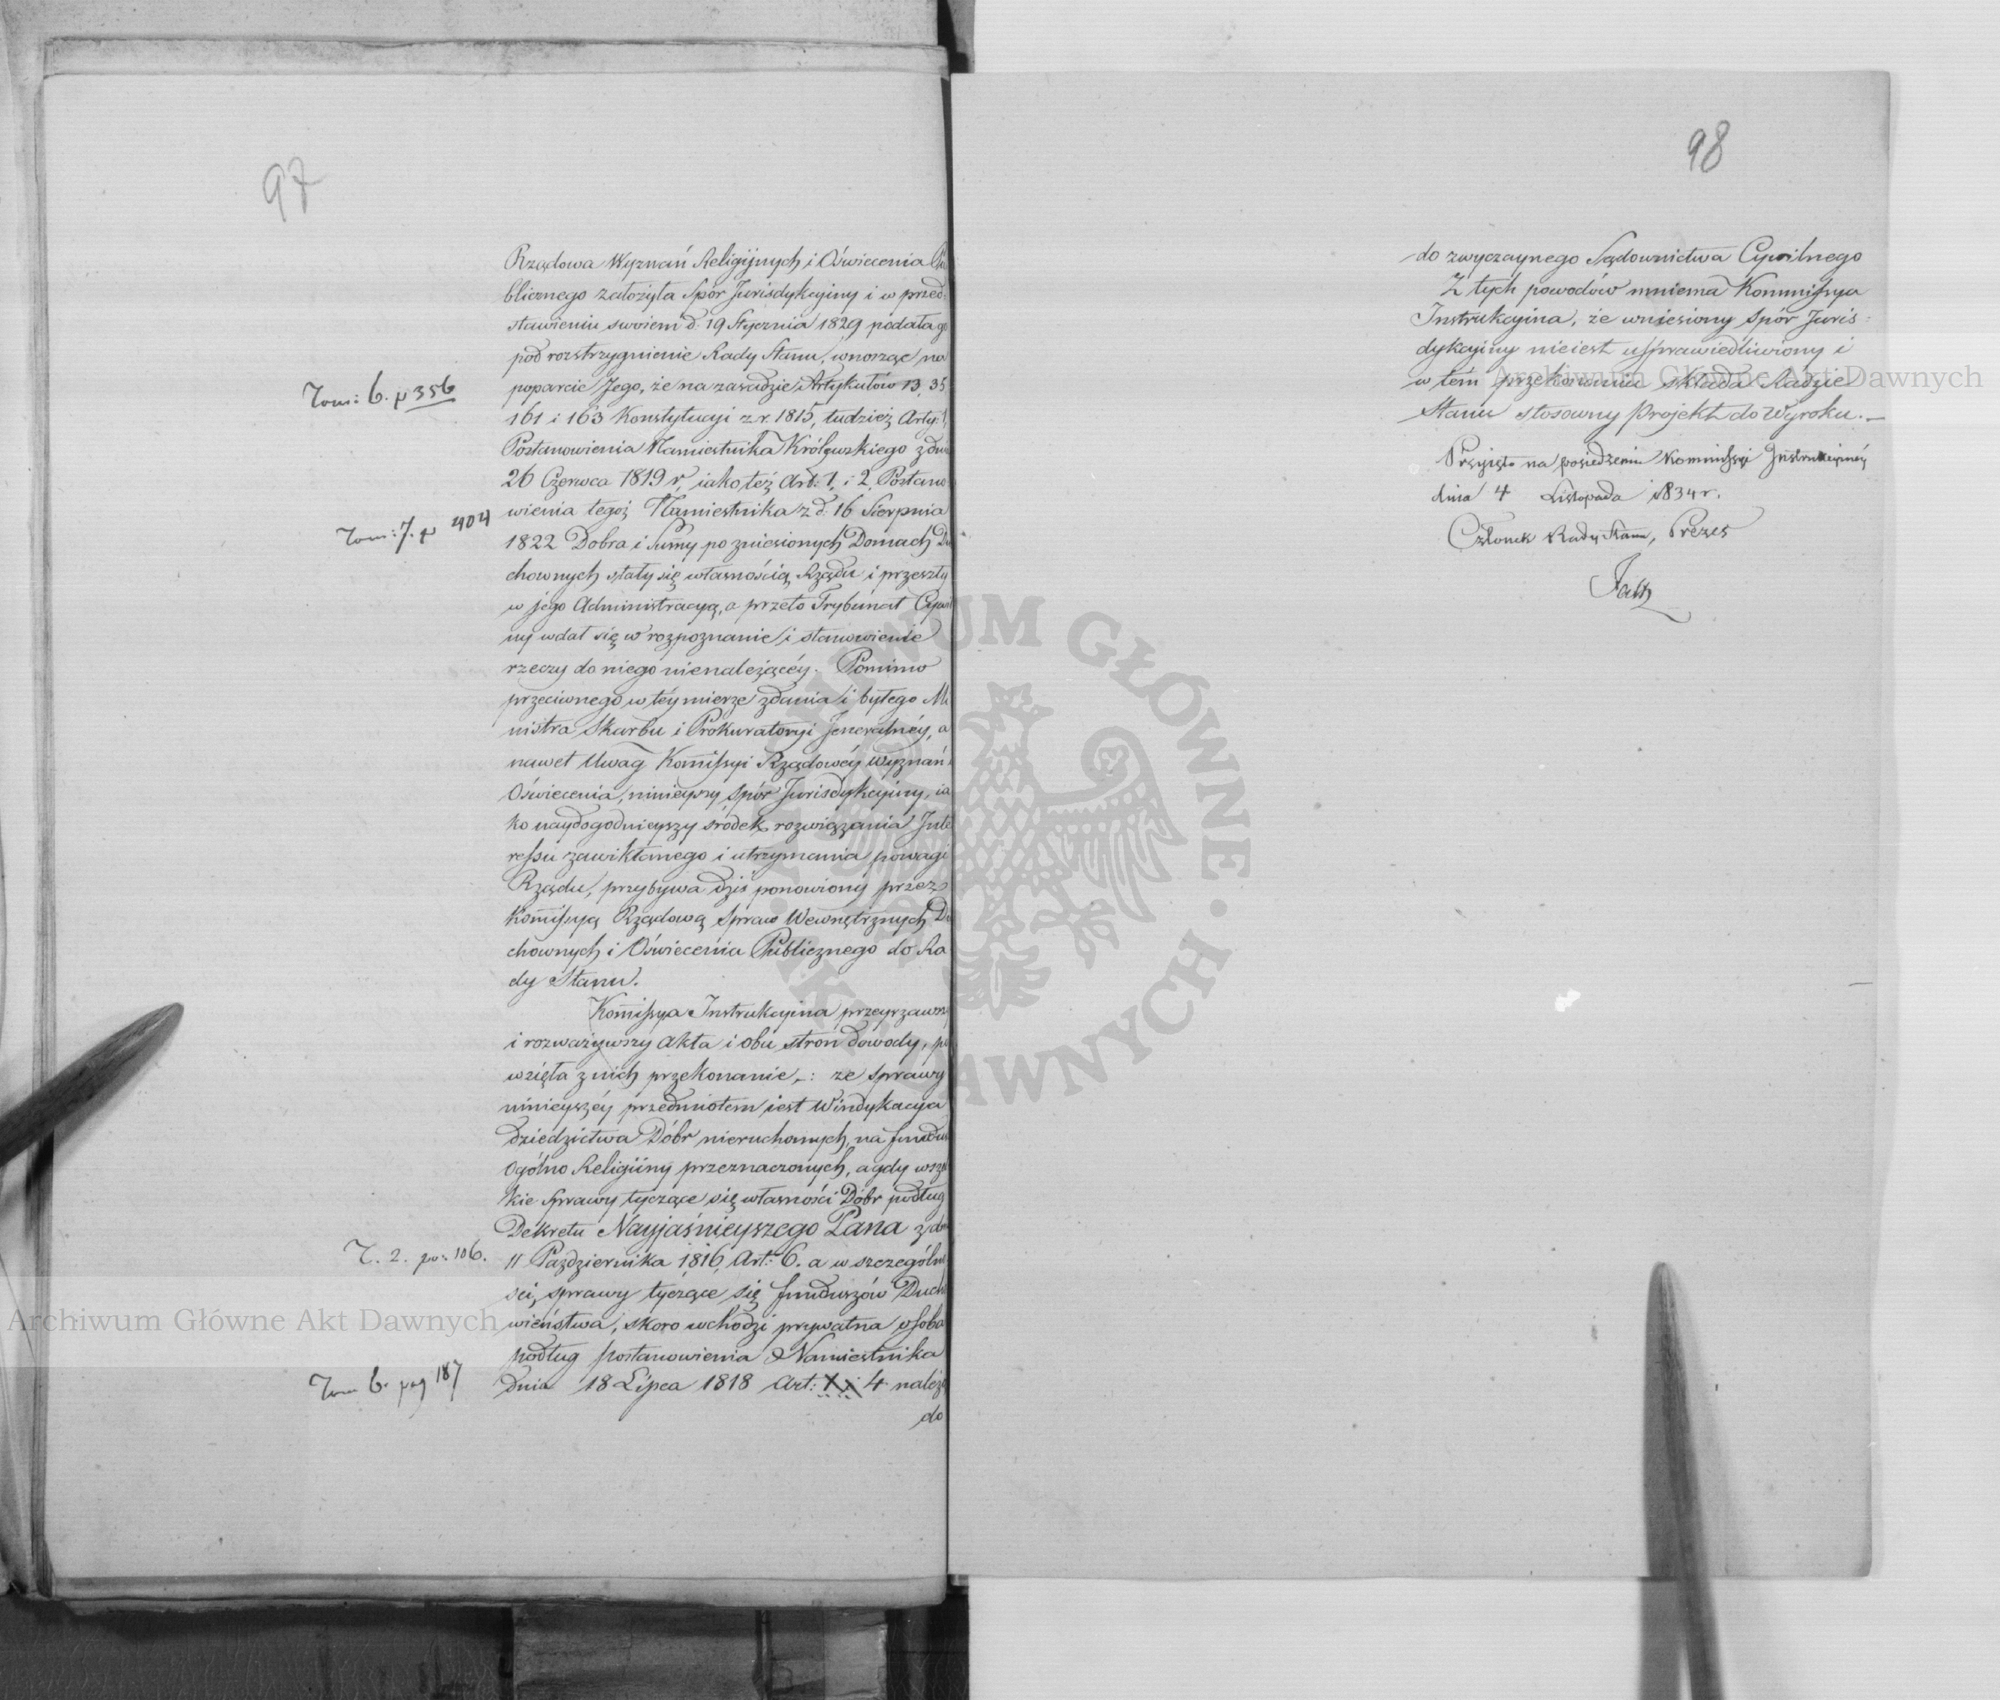 97
Rządowa Wyznań Religijnych i Oświecenia Pu
blicznego założyła Spór Jurisdykcyiny i w przed
stawieniu swoiem d. 19 Stycznia 1829 podała go
pod rozstrzygnienie Rady Stanu, wnosząc na
poparcie Jego, że na zasadzie Artykułów 13, 35
Tom: 6. p 356
161 i 163 Konstytucyi z r. 1815, tudzież Arty: 1,
Postanowienia Namiestnika Królewskiego z dnia
26 Czerwca 1819 r. iako też Art: 1, i 2, Postano
wienia tegoż Namiestnika z d. 16 Sierpnia
Tom: 7. p 404
1822 Dobra i Summy po zniesionych Domach Du
chownych stały się własnością Rządu i przeszły
w jego Administracyą, a przeto Trybunał Cywil
ny wdał się w rozpoznanie i stanowienie
rzeczy do niego nienależącéy. Pomimo
przeciwnego w téy mierze zdania i byłego Mi
nistra Skarbu i Prokuratoryi Jeneralnéy, a
nawet Uwag Komissyi Rządowéy Wyznań i
Oświecenia, ninieyszy Spór Jurisdykcyiny, ia
ko naydogodnieyszy środek rozwiązania Inte
ressu zawikłanego i utrzymania powagi
Rządu, przybywa dziś ponowiony przez
Komissyą Rządową Spraw Wewnętrznych Du
chownych i Oświecenia Publicznego do Ra
dy Stanu.
Komissya Instrukcyina przeyrzawszy
i rozważywszy Akta i obu stron dowody, po
wzięła z nich przekonanie, : że sprawy
ninieyszéy przedmiotem iest Windykacya
dziedzictwa Dóbr nieruchomych, na fundusz
Ogólno Religiiny przeznaczonych, a gdy wszel
kie Sprawy tyczące się własności Dóbr podług
Dekretu Nayjaśnieyszego Pana z dnia
T. 2. pa: 106.
11 Października 1816, Art: 6. a w szczególno
ści, sprawy tyczące się funduszów Ducho
wieństwa, skoro wchodzi prywatna osoba
podług postanowienia Namiestnika
Tom 6. pag 187
dnia 18 Lipca 1818 Art: 4 należą
do
98
do zwyczaynego Sądownictwa Cywilnego
Z tych powodów mniema Kommissya
Instrukcyina, że wniesiony Spór Juris:
dykcyiny nieiest usprawiedliwiony i
w tém przekonaniu składa Radzie
Stanu stosowny projekt do Wyroku.
Przyięto na posiedzeniu Kommissyi Instrukcyinéy
dnia 4 Listopada 1834 r.
Członek Rady Stanu, Prezes
Archiwum Główne Akt Dawnych
Archiwum Główne Akt Dawnych
ARCHIWUM GŁÓWNE · AKT DAWNYCH ·